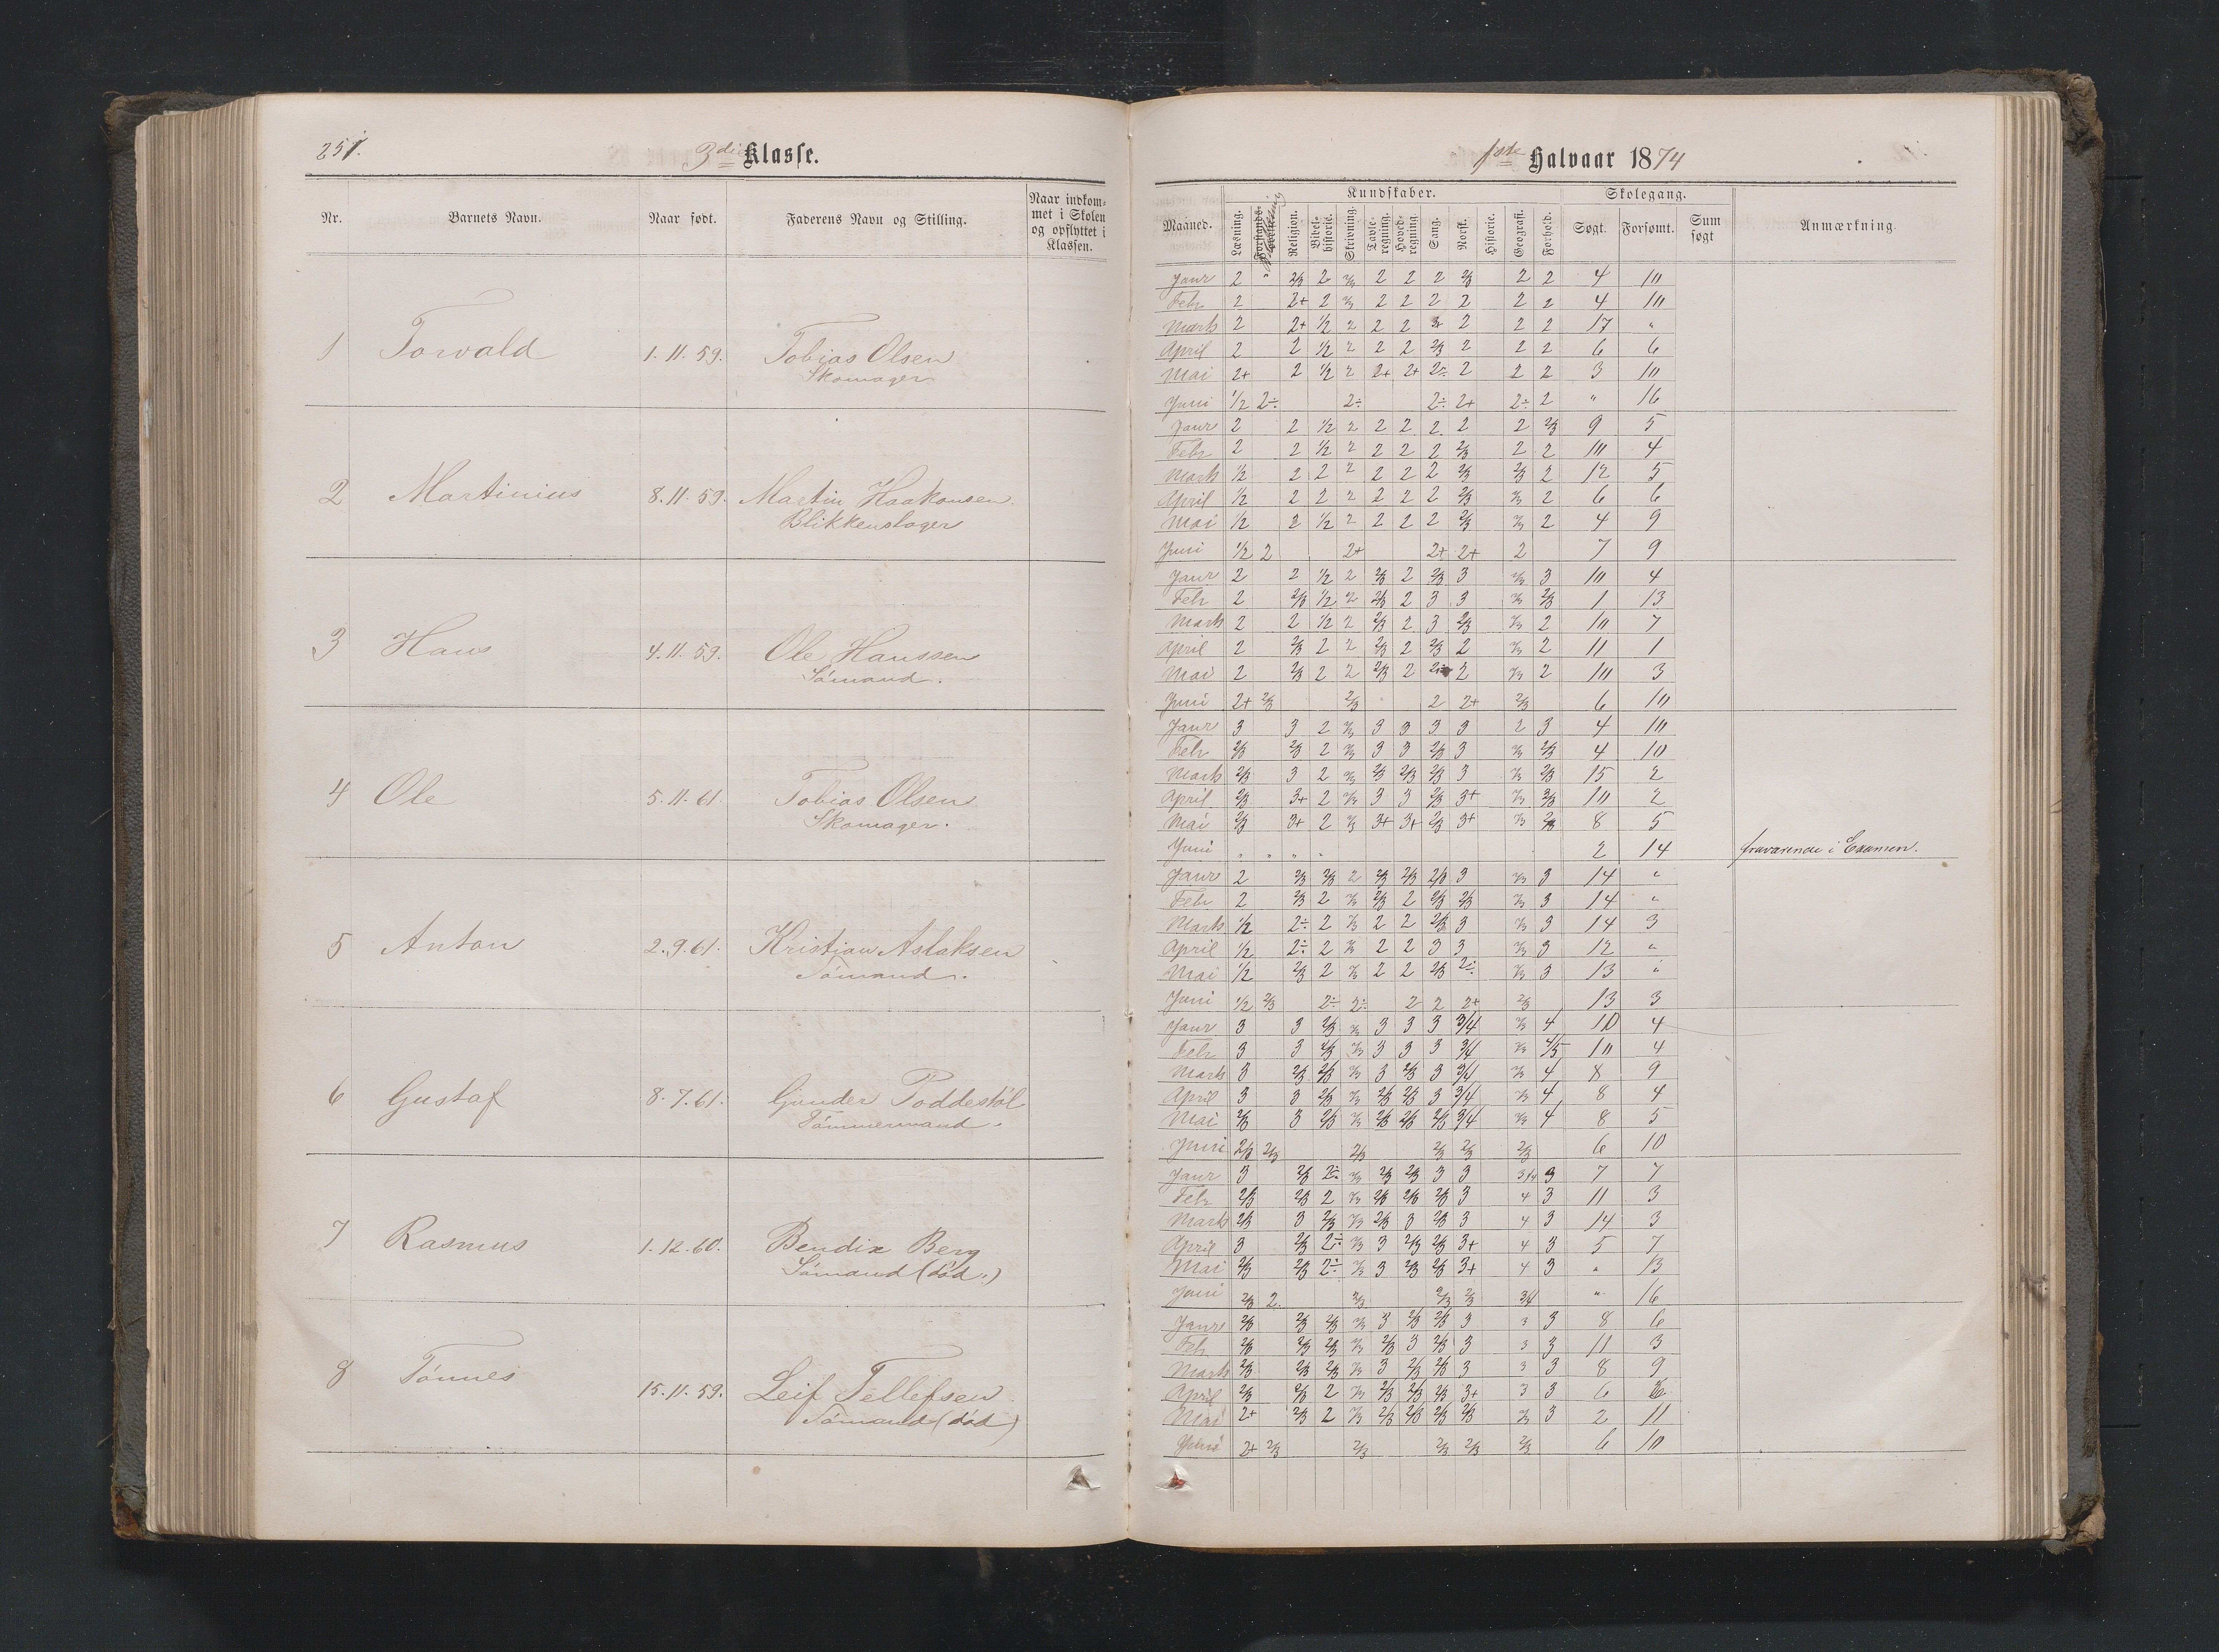 251.
3die Klasse.
Nr. Barnets Navn. Naar født. Faderens Navn og Stilling. Naar indkommet i Skolen og opflyttet i Klassen.
1 Torvald 1.11.59. Tobias Olsen
Skomager
2 Martinius 8.11.59. Martin Haakonsen.
Blikkenslager
3 Hans 4.11.59. Ole Hanssen
Sømand.
4 Ole 5.11.61. Tobias Olsen
Skomager.
5 Anton 2.9.61. Kristian Aslaksen
Sømand.
6 Gustaf 8.7.61. Gunder Poddestøl
Tømmermand.
7 Rasmus 1.12.60. Bendix Berg
Sømand (død.)
8 Tønnes 15.11.59. Leif Tellefsen
Sømand (død)
1ste Halvaar 1874
Kundskaber. Skolegang.
Maaned. Læsning. Religion. Bibelhistorie. Skrivning. Tavleregning. Hovedregning. Sang. Norsk. Historie. Geografi. Forhold. Søgt. Forsømt. Sum søgt Anmærkning.
Janr 2 " 2/3 2 2/3 2 2 2 2/3 2 2 4 10
Febr 2 2+ 2 2/3 2 2 2 2 2 2 4 10
Marts 2 2+ 1/2 2 2 2 2 2 2 17 "
April 2 2 1/2 2 2 2 2/3 2 2 2 6 6
Mai 2+ 2 1/2 2 2+ 2+ 2÷ 2 2 2 3 10
Juni 1/2 2÷ 2÷ 2÷ 2+ 2÷ 2 " 16
Janr 2 2 1/2 2 2 2 2 2 2 2/3 9 5
Febr 2 2 1/2 2 2 2 2 2/3 2 2 10 4
Marts 1/2 2 2 2 2 2 2 2/3 2/3 2 12 5
April 1/2 2 2 2 2 2 2 2/3 2/3 2 6 6
Mai 1/2 2 1/2 2 2 2 2 2/3 2/3 2 4 9
Juni 1/2 2 2+ 2+ 2+ 2 7 9
Janr 2 2 1/2 2 2/3 2 2/3 3 2/3 3 10 4
Febr 2 2/3 1/2 2 2/3 2 3 3 2/3 2/3 1 13
Marts 2 2 1/2 2 2/3 2 3 2/3 2/3 2 10 7
April 2 2/3 2 2 2/3 2 2/3 2 2/3 2 11 1
Mai 2 2/3 2 2 2/3 2 2 2/3 2 10 3
Juni 2+ 2/3 2/3 2 2+ 2/3 6 10
Janr 3 3 2 2/3 3 3 3 3 2 3 4 10
Febr 2/3 2/3 2 2/3 3 3 2/3 3 2/3 2/3 4 10
Marts 2/3 3 2 2/3 2/3 2/3 2/3 3 2/3 2/3 15 2
April 2/3 3+ 2 2/3 3 3 2/3 3+ 2/3 2/3 10 2
Mai 2/3 3+ 2 2/3 3+ 3+ 2/3 3+ 2/3 2/3 8 5
Juni " " " " 2 14 fraværende i Examen.
Janr 2 2/3 2/3 2 2/3 2/3 2/3 3 2/3 3 14 "
Febr 2 2/3 2 2/3 2/3 2 2/3 2/3 2/3 3 14 "
Marts 1/2 2÷ 2 2/3 2 2 2/3 3 2/3 3 14 3
April 1/2 2÷ 2 2/3 2 2 3 3 2/3 3 12 "
Mai 1/2 2/3 2 2/3 2 2 2/3 2÷ 2/3 3 13 "
Juni 1/2 2/3 2÷ 2÷ 2 2 2+ 2/3 13 3
Janr 3 3 2/3 2/3 3 3 3 3/4 2/3 4 10 4
Febr 3 3 2/3 2/3 3 3 3 3/4 2/3 4/5 10 4
Marts 3 2/3 2/3 2/3 3 2/3 3 3/4 2/3 4 8 9
April 3 3 2/3 2/3 2/3 2/3 3 3/4 2/3 4 8 4
Mai 2/3 3 2/3 2/3 2/3 2/3 2/3 3/4 2/3 4 8 5
Juni 2/3 2/3 2/3 2/3 2/3 2/3 6 10
Janr 3 2/3 2÷ 2/3 2/3 2/3 3 3 3/4 3 7 7
Febr 2/3 2/3 2 2/3 2/3 2/3 2/3 3 4 3 11 3
Marts 2/3 3 2/3 2/3 2/3 3 2/3 3 4 3 14 3
April 3 2/3 2÷ 2/3 3 2/3 2/3 3+ 4 3 5 7
Mai 2/3 2/3 2÷ 2/3 3 2/3 2/3 3+ 4 3 " 13
Juni 2/3 2. 2/3 2/3 2/3 3/4 " 16
Janr 2/3 2/3 2/3 2/3 3 2/3 2/3 3 3 3 8 6
Feb 2/3 2/3 2/3 2/3 2/3 3 2/3 3 3 3 11 3
Marts 2/3 2/3 2/3 2/3 3 2/3 2/3 3 3 3 8 9
April 2/3 2/3 2 2/3 2/3 2/3 2/3 3+ 3 3 6
Mai 2+ 2/3 2 2/3 2/3 2/3 2/3 2/3 2/3 3 2 11
Juni 2+ 2/3 2/3 2/3 2/3 2/3 6 10